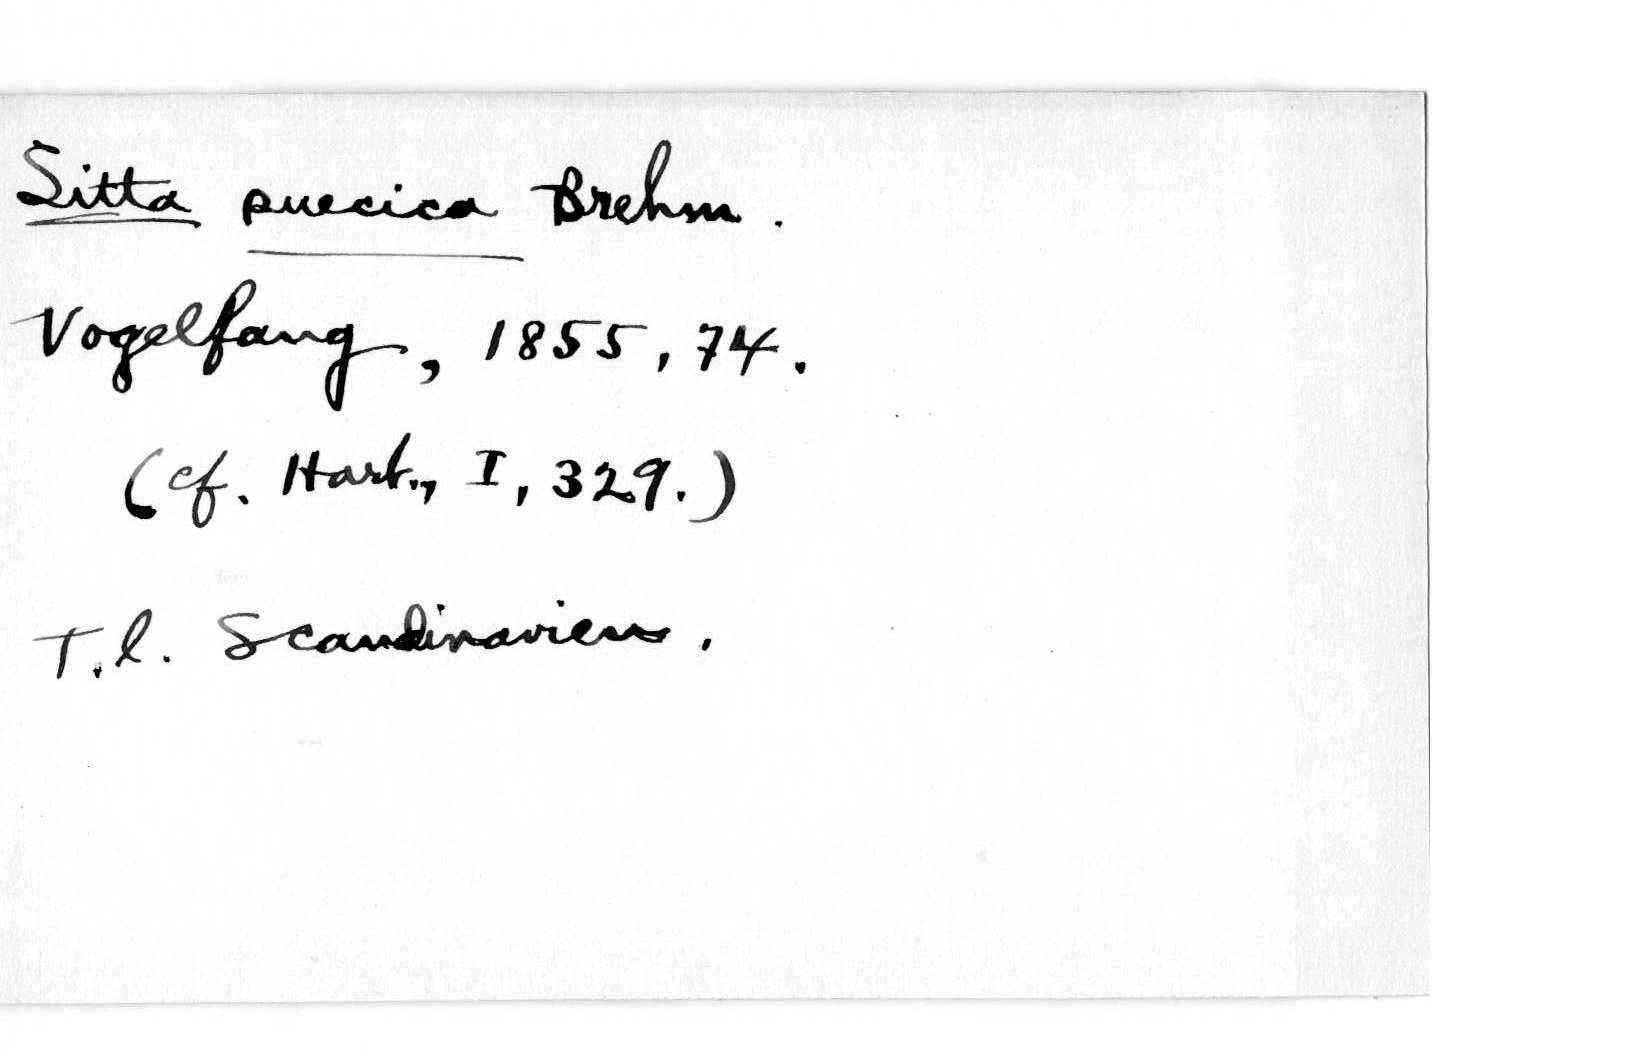 Sitta suecica Brehm.
Vogelfang, 1855, 74.
(cf. Hart., I, 329.)
T.l. Scandinavien.